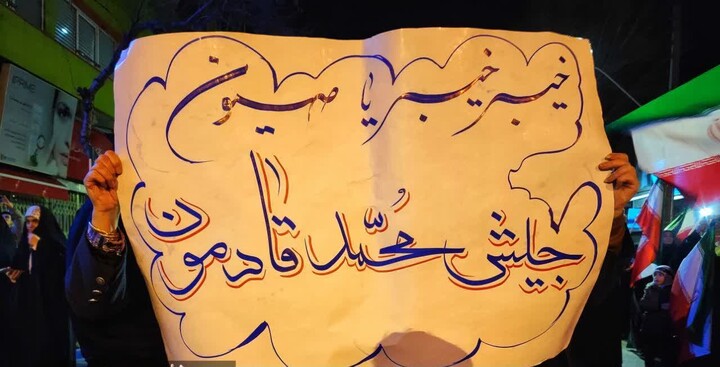 خیبر خیبر یا صهیون
جیش مُحمّد قادمون